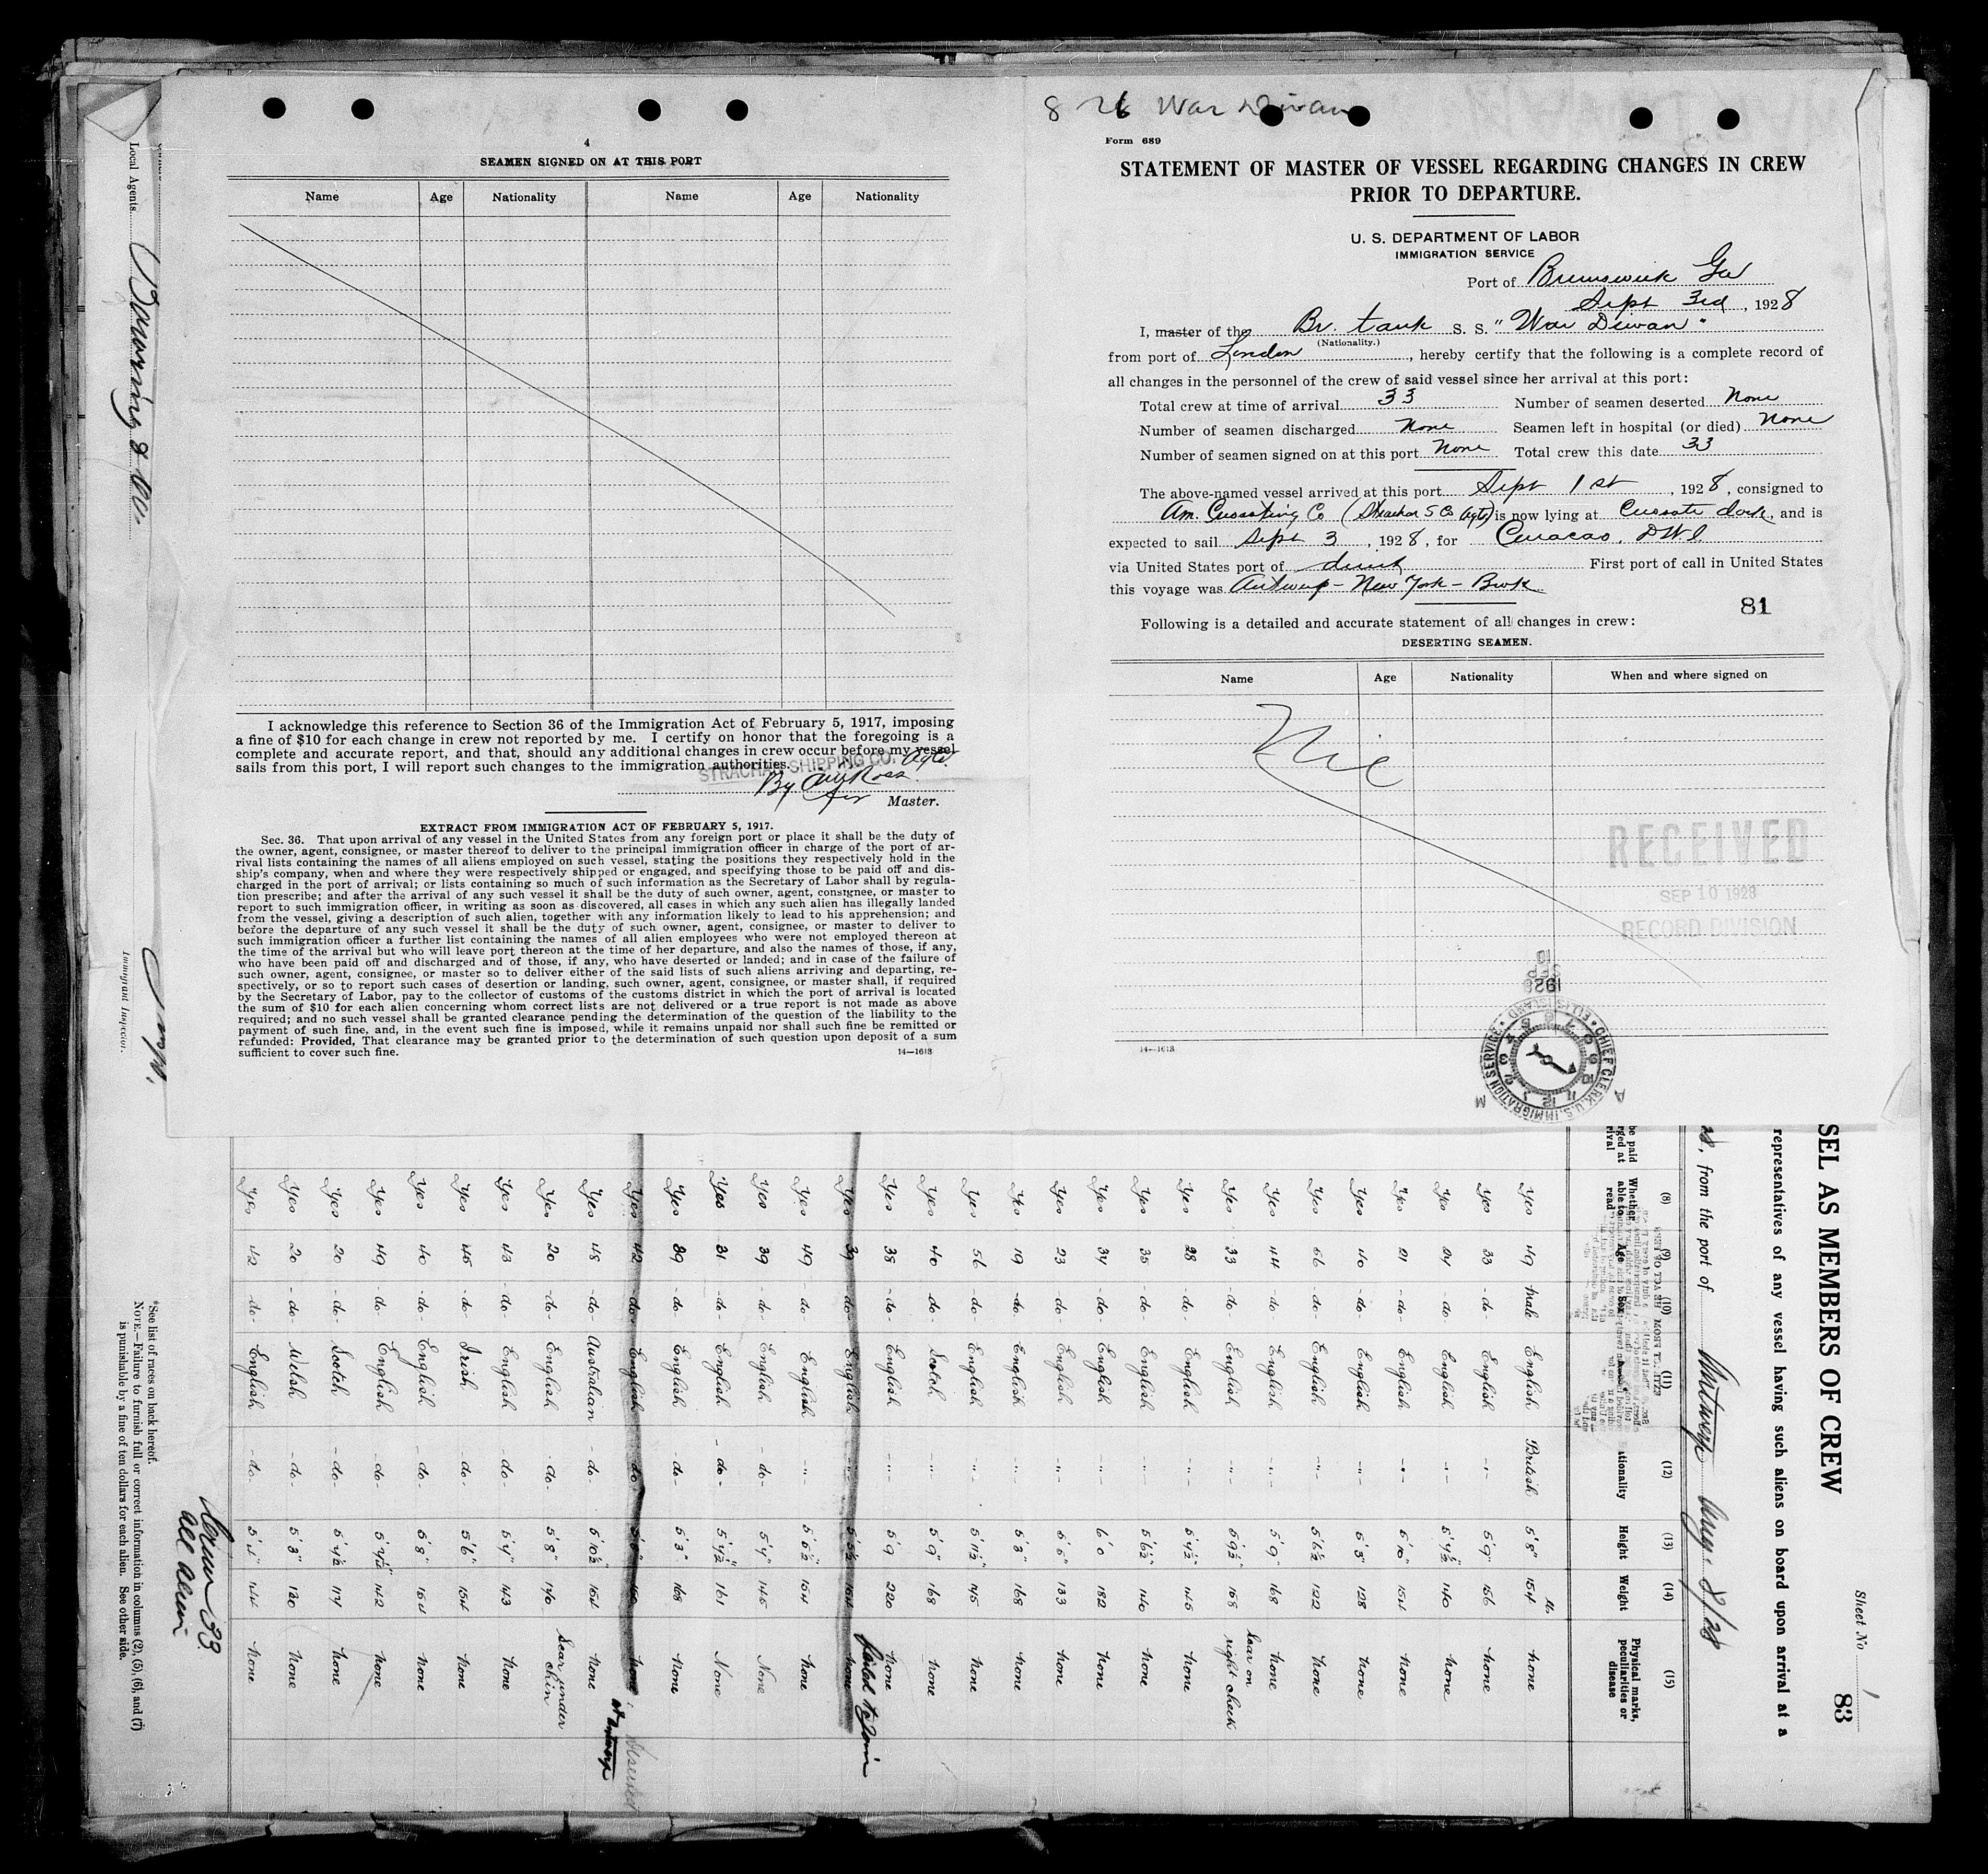 8 26 War Diwan
4
SEAMEN SIGNED ON AT THIS PORT
Name Age Nationality Name Age Nationality
I acknowledge this reference to Section 36 of the Immigration Act of February 5, 1917, imposing
a fine of $10 for each change in crew not reported by me. I certify on honor that the foregoing is a
complete and accurate report, and that, should any additional changes in crew occur before my vessel
sails from this port, I will report such changes to the immigration authorities.
STRACHAN SHIPPING CO. Agts
By Ross
Master.
EXTRACT FROM IMMIGRATION ACT OF FEBRUARY 5, 1917.
Sec. 36. That upon arrival of any vessel in the United States from any foreign port or place it shall be the duty of
the owner, agent, consignee, or master thereof to deliver to the principal immigration officer in charge of the port of ar-
rival lists containing the names of all aliens employed on such vessel, stating the positions they respectively hold in the
ship's company, when and where they were respectively shipped or engaged, and specifying those to be paid off and dis-
charged in the port of arrival; or lists containing so much of such information as the Secretary of Labor shall by regula-
tion prescribe; and after the arrival of any such vessel it shall be the duty of such owner, agent, consignee, or master to
report to such immigration officer, in writing as soon as discovered, all cases in which any such alien has illegally landed
from the vessel, giving a description of such alien, together with any information likely to lead to his apprehension; and
before the departure of any such vessel it shall be the duty of such owner, agent, consignee, or master to deliver to
such immigration officer a further list containing the names of all alien employees who were not employed thereon at
the time of the arrival but who will leave port thereon at the time of her departure, and also the names of those, if any,
who have been paid off and discharged and of those, if any, who have deserted or landed; and in case of the failure of
such owner, agent, consignee, or master so to deliver either of the said lists of such aliens arriving and departing, re-
spectively, or so to report such cases of desertion or landing, such owner, agent, consignee, or master shall, if required
by the Secretary of Labor, pay to the collector of customs of the customs district in which the port of arrival is located
the sum of $10 for each alien concerning whom correct lists are not delivered or a true report is not made as above
required; and no such vessel shall be granted clearance pending the determination of the question of the liability to the
payment of such fine, and, in the event such fine is imposed, while it remains unpaid nor shall such fine be remitted or
refunded: Provided, That clearance may be granted prior to the determination of such question upon deposit of a sum
sufficient to cover such fine.
14—1613
Form 689
STATEMENT OF MASTER OF VESSEL REGARDING CHANGES IN CREW
PRIOR TO DEPARTURE.
U. S. DEPARTMENT OF LABOR
IMMIGRATION SERVICE
Port of Brunswick Ga
Sept 3rd, 1928
I, master of the Br. tank S. S. "War Diwan"
(Nationality.)
from port of London, hereby certify that the following is a complete record of
all changes in the personnel of the crew of said vessel since her arrival at this port:
Total crew at time of arrival 33 Number of seamen deserted None
Number of seamen discharged None Seamen left in hospital (or died) None
Number of seamen signed on at this port None Total crew this date 33
The above-named vessel arrived at this port Sept 1st, 1928, consigned to
Am. Creosoting Co (Strachan S Co Agts) is now lying at Creosote dock, and is
expected to sail Sept 3, 1928, for Curacao, DWI
via United States port of direct First port of call in United States
this voyage was Antwerp - New York - Bwk
81
Following is a detailed and accurate statement of all changes in crew:
DESERTING SEAMEN.
Name Age Nationality When and where signed on
Nil
RECEIVED
SEP 10 1928
RECORD DIVISION
14—1613
SEP 10 1928
CHIEF CLERK U.S. IMMIGRATION SERVICE · ELLIS ISLAND
A M
Local Agents Downing & Co.
Immigrant Inspector.
Sheet No. 1
83
SEL AS MEMBERS OF CREW
representatives of any vessel having such aliens on board upon arrival at a
, from the port of Antwerp Aug. 8/28
(8) (9) (10) (11) (12) (13) (14) (15)
Whether able to read Age Sex Height Weight Physical marks, peculiarities or disease
Yes 49 male English British 5'8" 154 none
Yes 33 -do- English 5'9" 156 none
Yes 24 -do- English 140 none
Yes 21 -do- English 5'10" 154 none
Yes 40 -do- English 128 none
Yes 56 -do- English 5'6½ 122 none
Yes 44 -do- English 5'9" 168 none
Yes 33 -do- English 5'9½" 168 scar on right cheek
Yes 28 -do- English 5'4½" 145 none
Yes 35 -do- English 5'6½" 140 none
Yes 34 -do- English 6'0 182 none
Yes 23 -do- English 133 none
Yes 19 -do- English 5'8" 168 none
Yes 56 -do- English 5'11½" none
Yes 40 -do- Scotch 5'9" 168 none
Yes 38 -do- English 5'9 220 none
Yes 39 -do- English none failed to join
Yes 49 -do- English 5'6½" 154 none
Yes 39 -do- English -do- 5'4" 145 None
Yes 31 -do- English -do- 5'4½" 161 None
Yes 39 -do- English -do- 5'3" 168 none
Yes 42 -do- English -do- none Deserted at Antwerp
Yes 48 -do- Australian -do- 5'10½ 154 none
Yes 20 -do- English -do- 5'8" 146 Scar under chin
Yes 43 -do- English -do- 5'4" 143 none
Yes 45 -do- Irish -do- 5'6" 154 none
Yes 40 -do- English -do- 5'8" 154 none
Yes 49 -do- English -do- 5'4½" 142 none
Yes 20 -do- Scotch -do- 5'4½ 114 none
Yes 20 -do- Welsh -do- 5'8" 130 none
Yes 42 -do- English -do- none
*See list of races on back hereof.
NOTE.—Failure to furnish full or correct information in columns (2), (5), (6), and (7)
is punishable by a fine of ten dollars for each alien. See other side.
Crew 33
all alien